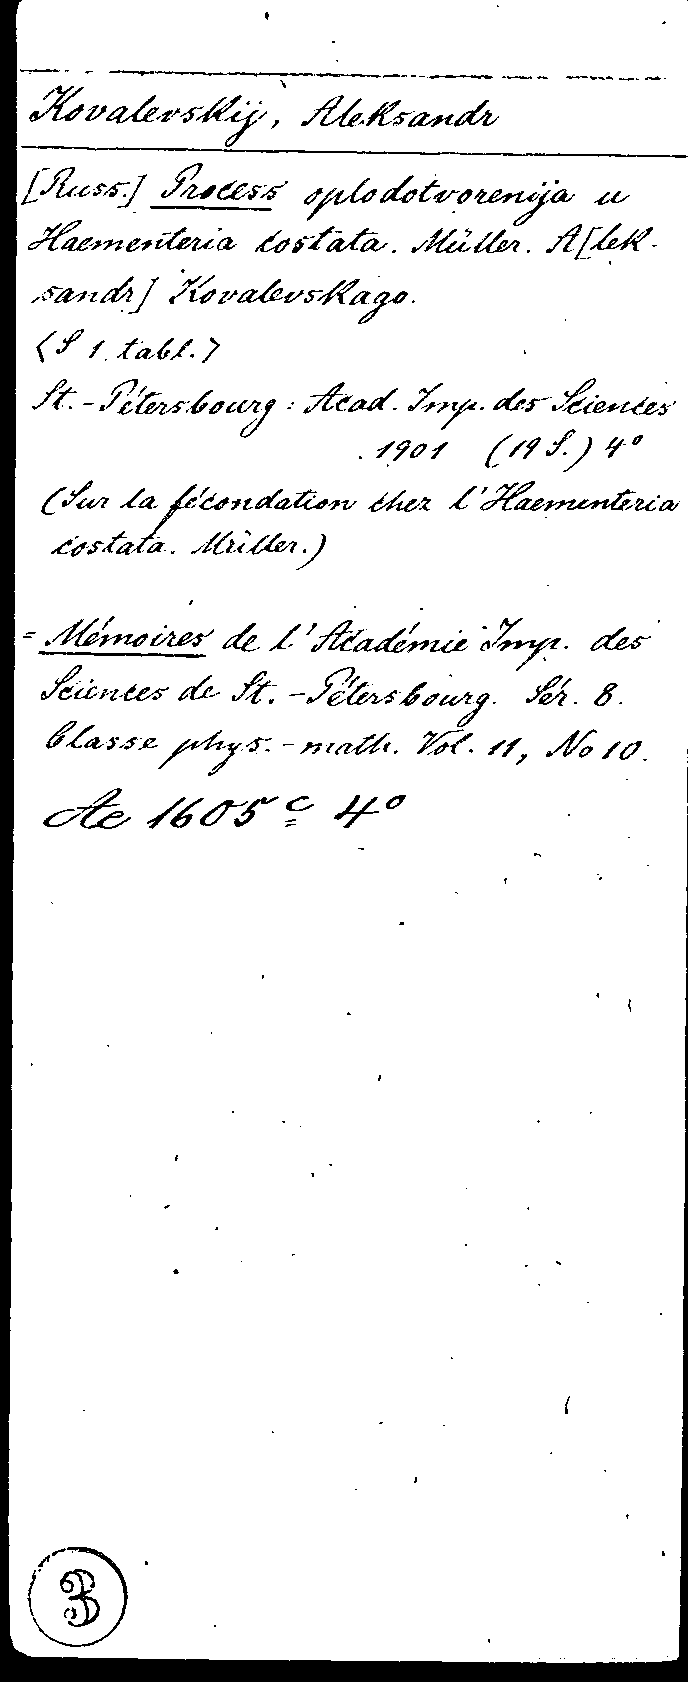 Kovalevskij, Aleksandr
[Russ.] Process oplodotvorenija u
Haementeria costata. Müller. A[lek-
sandr] Kovalevskago.
<S 1 tabl.>
St.-Pétersbourg: Acad. Imp. des Sciences
1901 (19 S.) 4°
(Sur la fécondation chez l'Haementeria
costata. Müller.)
= Mémoires de l'Académie Imp. des
Sciences de St.-Pétersbourg. Sér. 8.
Classe phys.-math. Vol. 11, No 10.
Ac 1605 c 4°
3